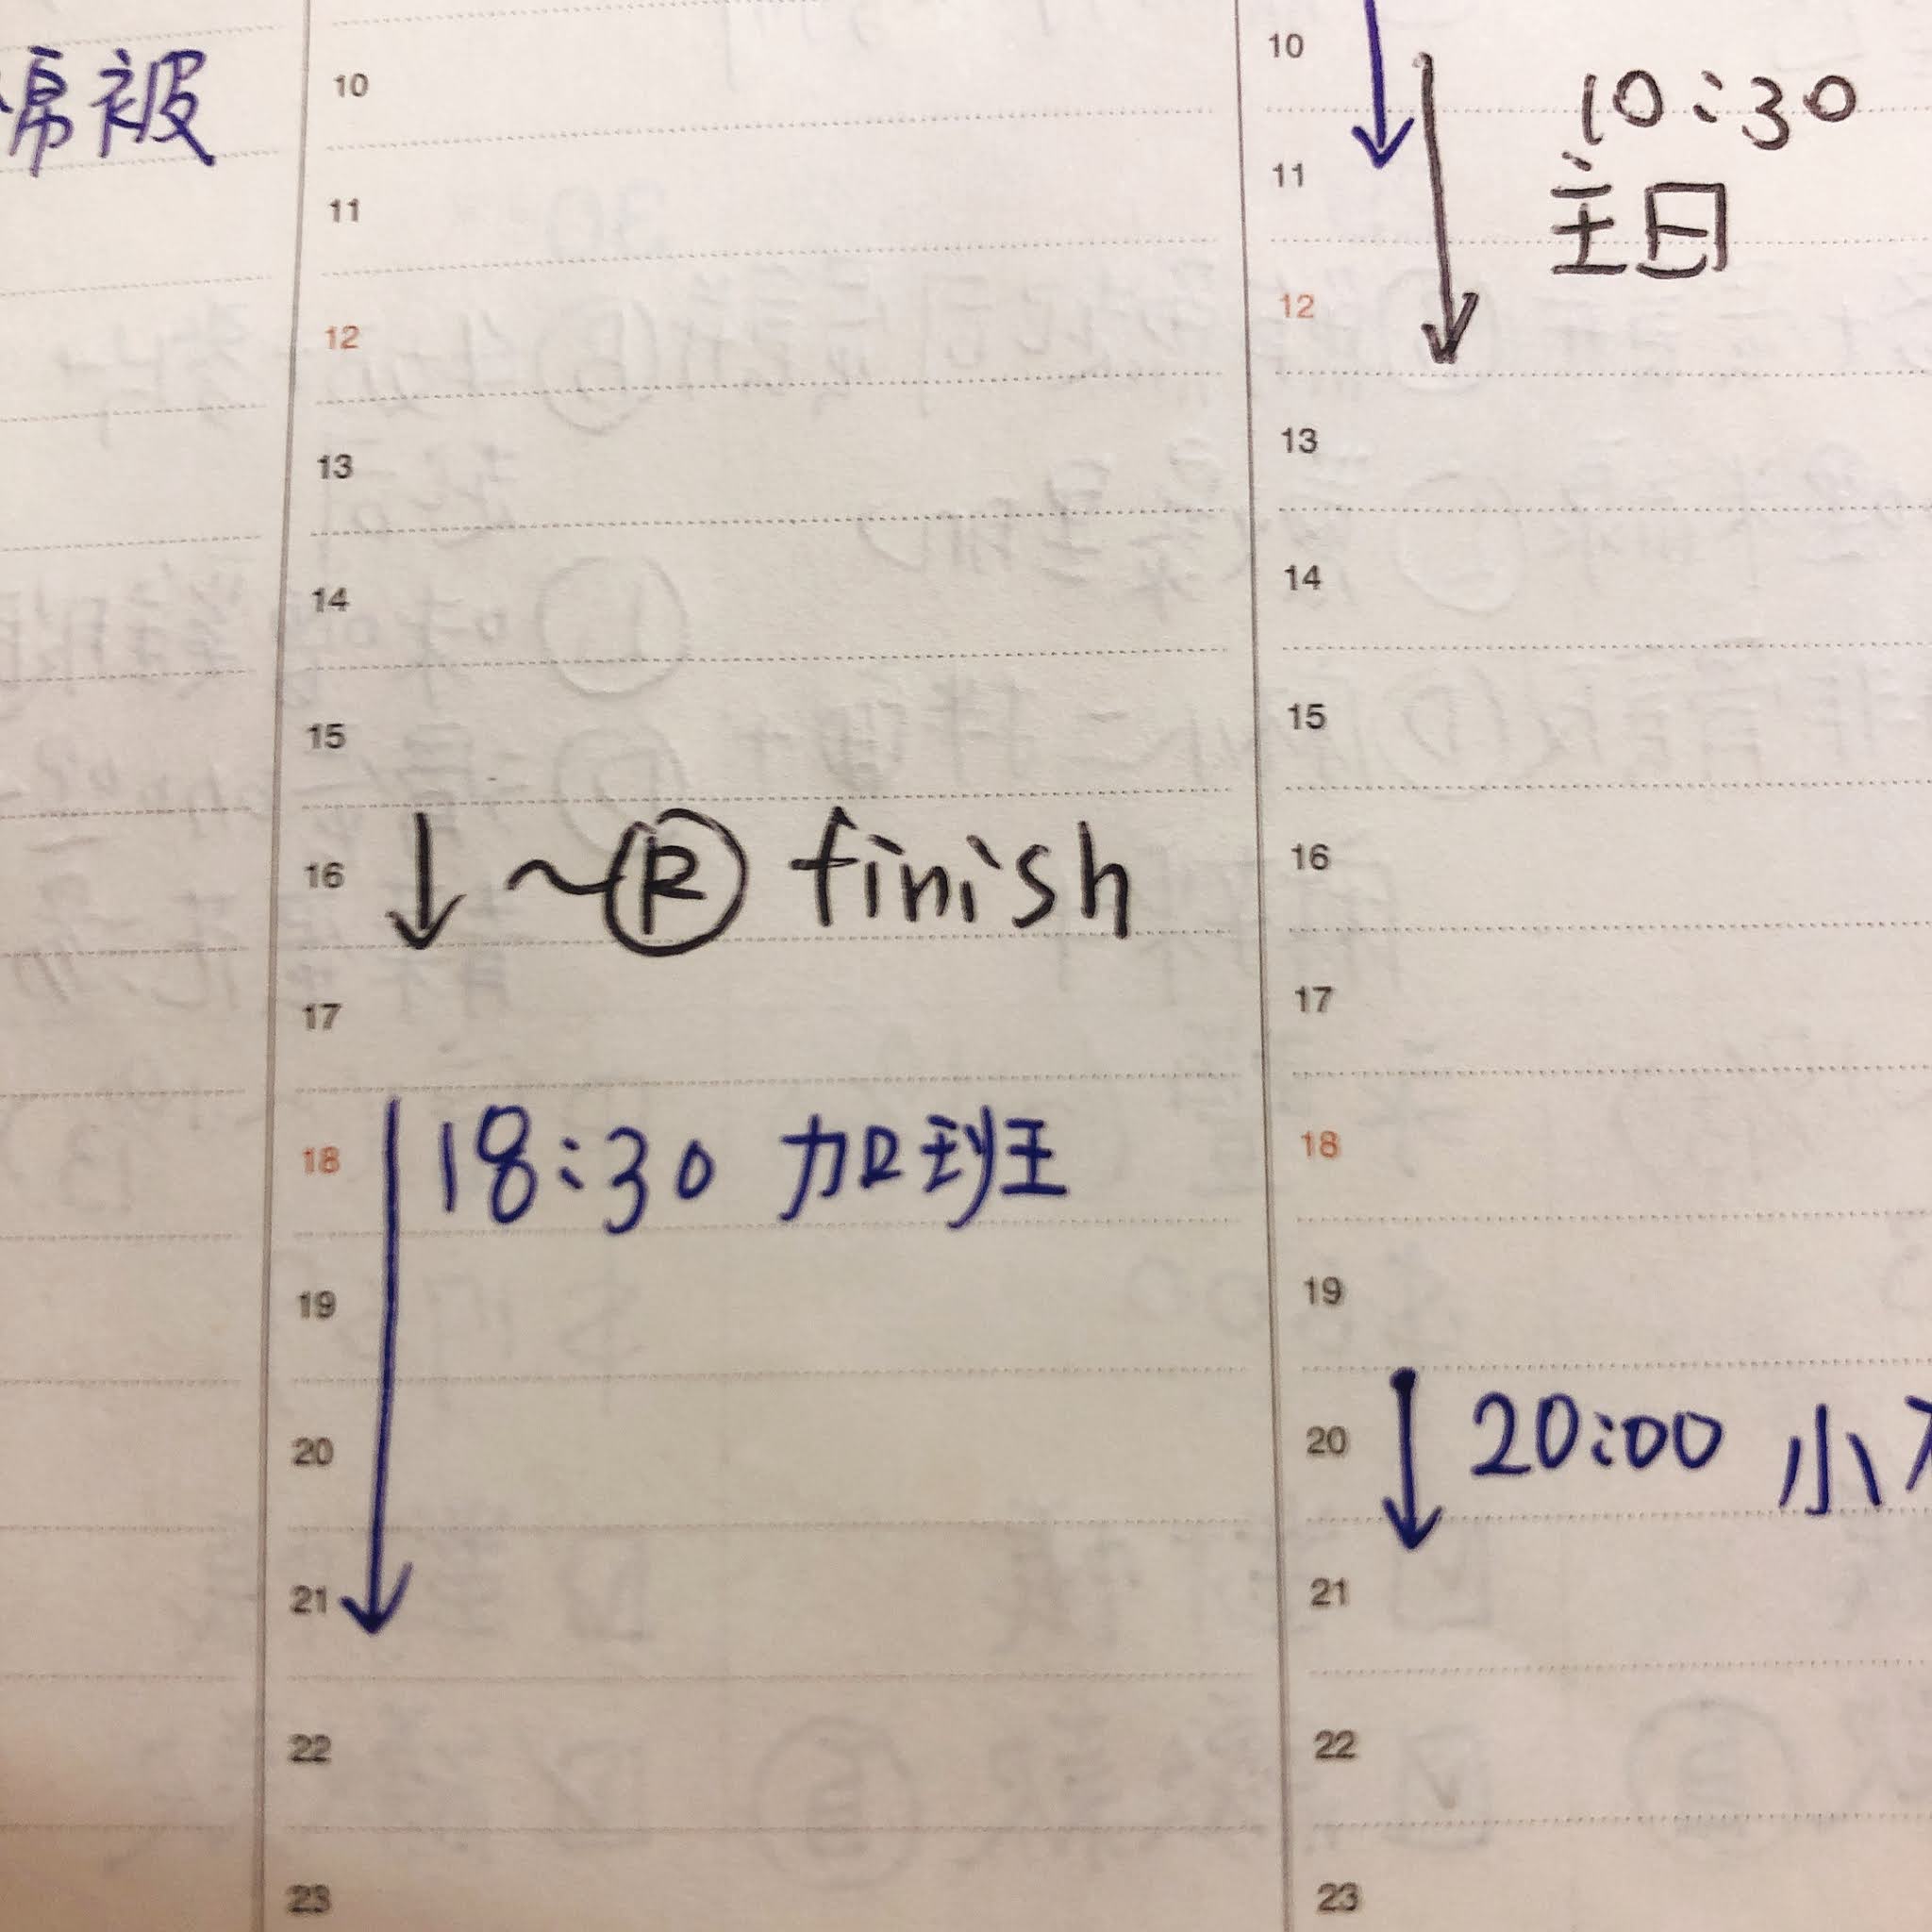 棉被
10
11
12
13
14
15
16 ~Ⓡ finish
17
18 18:30 加班
19
20
21
22
23
10 10:30
主日
11
12
13
14
15
16
17
18
19
20 20:00 小
21
22
23